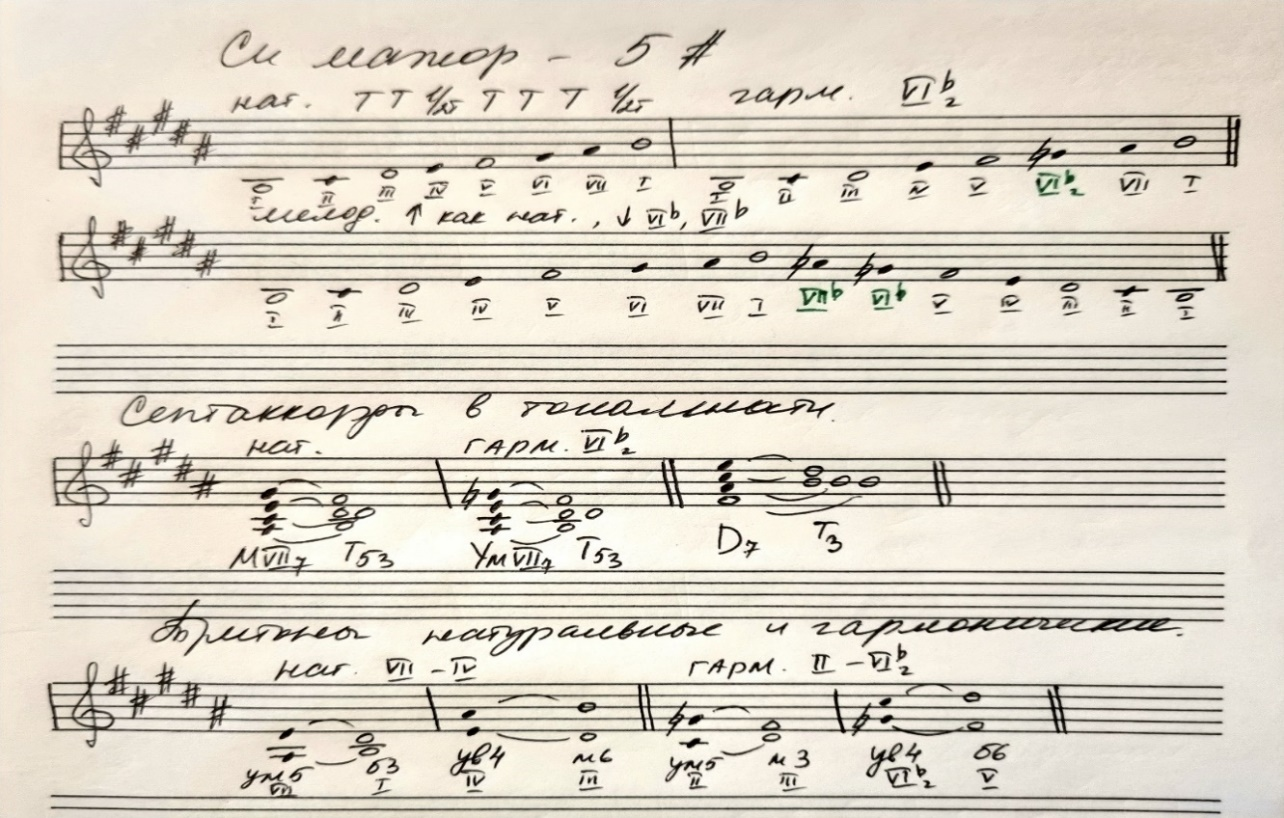 Си мажор - 5 #
нат. Т Т 1/2т Т Т Т 1/2т гарм. VI♭г
I II III IV V VI VII I I II III IV V VI♭г VII I
мелод. ↑ как нат., ↓ VI♭, VII♭
I II III IV V VI VII I VII♭ VI♭ V IV III II I
Септаккорды в тональности.
нат. ГАРМ. VI♭г
МVII7 Т53 УмVII7 Т53 D7 Т3
Тритоны натуральные и гармонические.
нат. VII - IV ГАРМ. II - VI♭г
ум5 б3 ув4 м6 ум5 м3 ув4 б6
VII I IV III II III VI♭г V